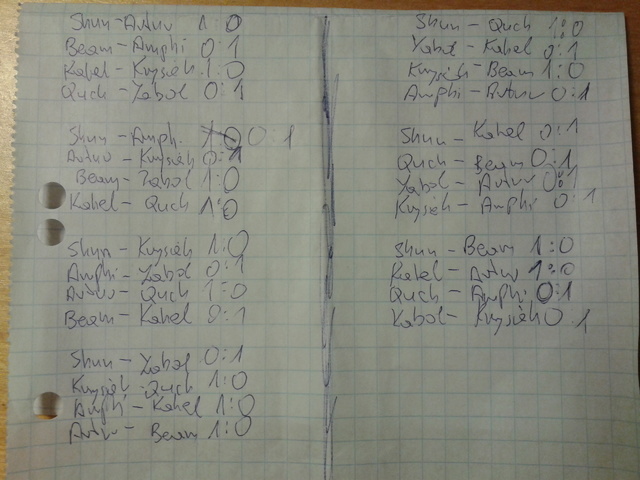 Shun - Artur 1:0
Beam - Amphi 0:1
Kahel - Krysiek 1:0
Quch - Yabol 0:1
Shun - Amph. 0:1
Artur - Krysiek 0:1
Beam - Yabol 1:0
Kahel - Quch 1:0
Shun - Krysiek 1:0
Amphi - Yabol 0:1
Artur - Quch 1:0
Beam - Kahel 0:1
Shun - Yabol 0:1
Krysiek - Quch 1:0
Amphi - Kahel 1:0
Artur - Beam 1:0
Shun - Quch 1:0
Yabol - Kahel 0:1
Krysiek - Beam 1:0
Amphi - Artur 0:1
Shun - Kahel 0:1
Quch - Beam 0:1
Yabol - Artur 0:1
Krysiek - Amphi 0:1
Shun - Beam 1:0
Kahel - Artur 1:0
Quch - Amphi 0:1
Yabol - Krysiek 0:1